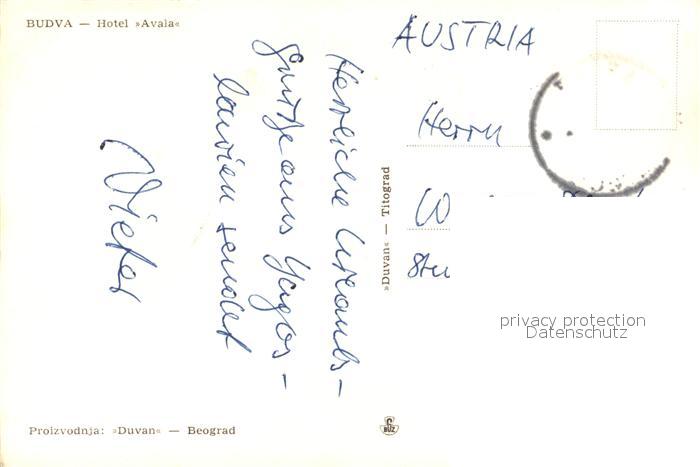 BUDVA — Hotel »Avala«
Herzliche Urlaubs-
grüße aus Jugos-
lawien sendet
»Duvan« — Titograd
AUSTRIA
Herrn
W
Stu
privacy protection
Datenschutz
Proizvodnja: »Duvan« — Beograd
BUZ